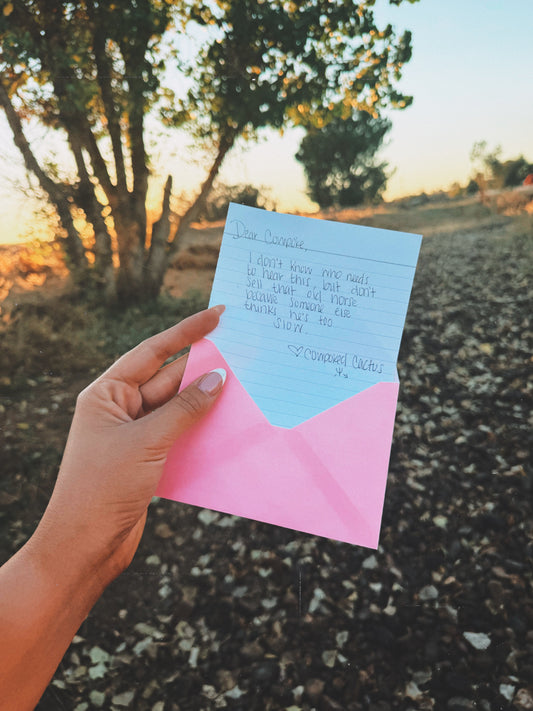 Dear Compère,
I don't know who needs
to hear this, but don't
sell that old horse
because someone else
thinks he's too
slow.
♡ Composed Cactus